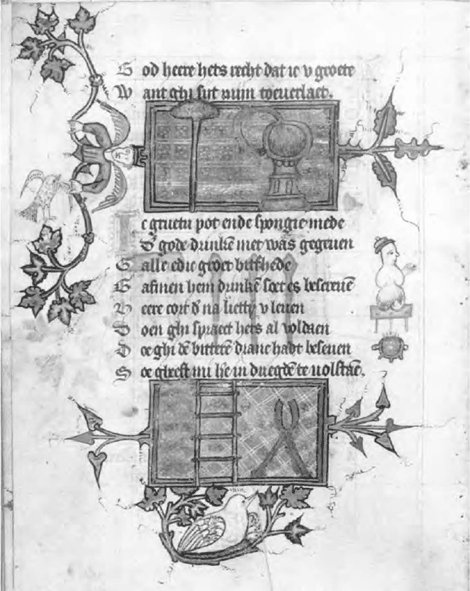 G od heere hets recht dat ic v groete
W ant ghi sijt mijn toeuerlaet.
I c gruetu pot ende spongie mede
D gode dranckē met was gegeuen
G alle edic groet bitthede
G afmen hem drinkē soet es bescreuē
H eere cort d' na lietty v leuen
D oen ghi spraect hets al voldaen
D oe ghi dē bitterē dranc hadt beseuen
S oe ghest mi he in duegdē te volstaē.